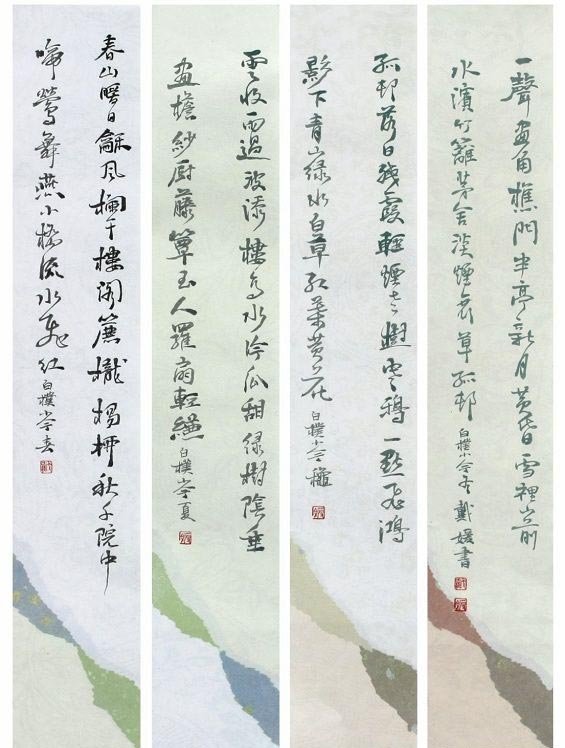 春山暖日龢風欄干樓閣簾櫳楊柳秋千院中
啼鶯舞燕小橋流水飛紅 白樸小令春
雲收雨過波添樓高水冷瓜甜緑樹陰垂
畫檐紗厨藤簟玉人羅扇輕縑 白樸小令夏
孤邨落日殘霞輕煙老樹寒鴉一點飛鴻
影下青山緑水白草紅葉黄花 白樸小令龝
一聲畫角樵門半亭新月黄昏雪裡山前
水濱竹籬茅舍淡煙衰草孤邨 白樸小令冬 戴媛書